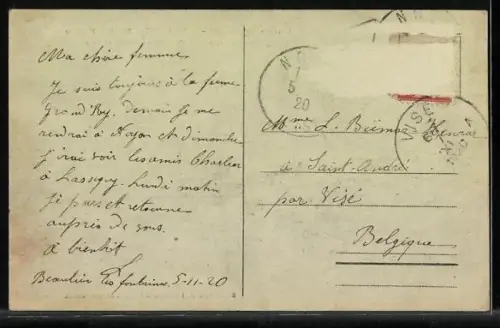 Ma chère femme
Je suis toujours à la ferme
grand Roy, demain je me
rendrai à Noyon et dimanche
j'irai voir les amis Charlier
à Lassigny. Lundi matin
je pars et retourne
auprès de vous.
à bientôt
Beaulieu les fontaines 5-11-20
Mme L.
à Saint-André
par Visé
Belgique
5
20
VISE